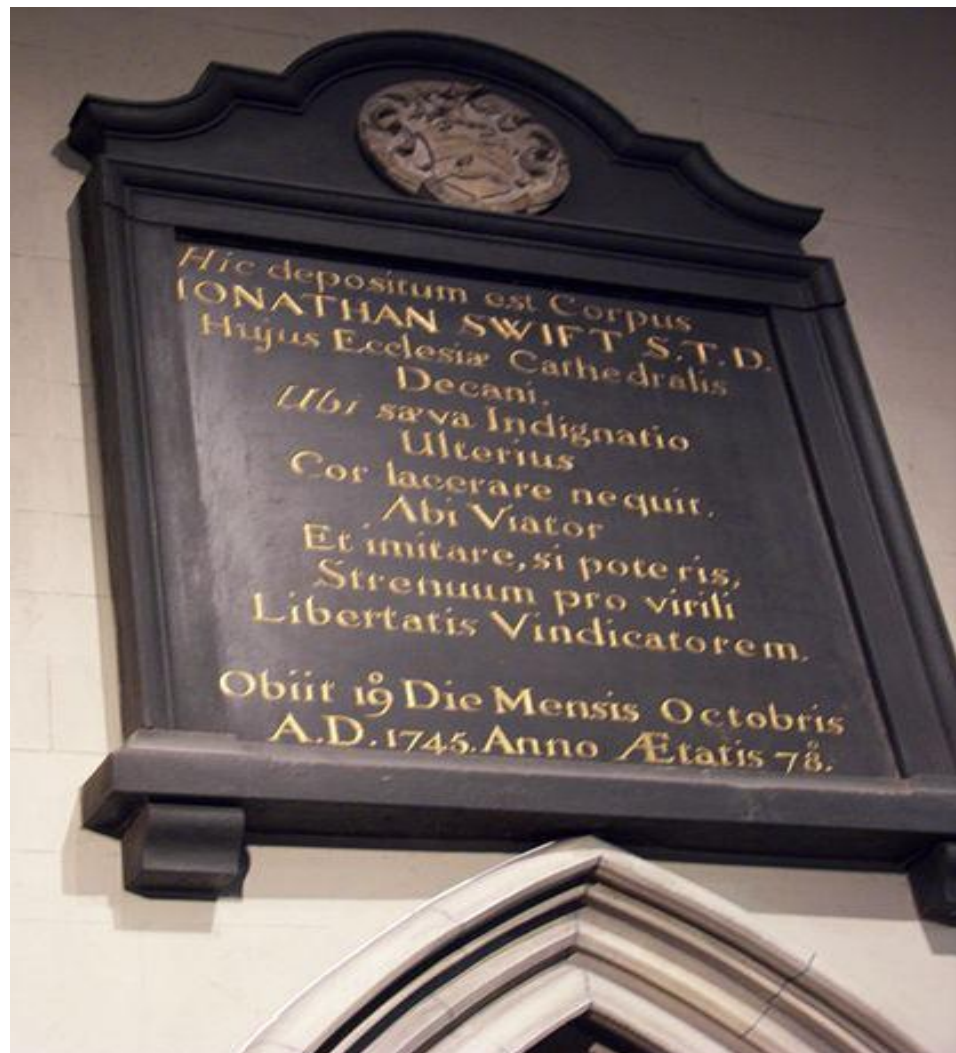 Hic depositum est Corpus
IONATHAN SWIFT S.T.D.
Hujus Ecclesiæ Cathedralis
Decani,
Ubi sæva Indignatio
Ulterius
Cor lacerare nequit.
Abi Viator
Et imitare, si poteris,
Strenuum pro virili
Libertatis Vindicatorem.
Obiit 19º Die Mensis Octobris
A.D. 1745. Anno Ætatis 78º.